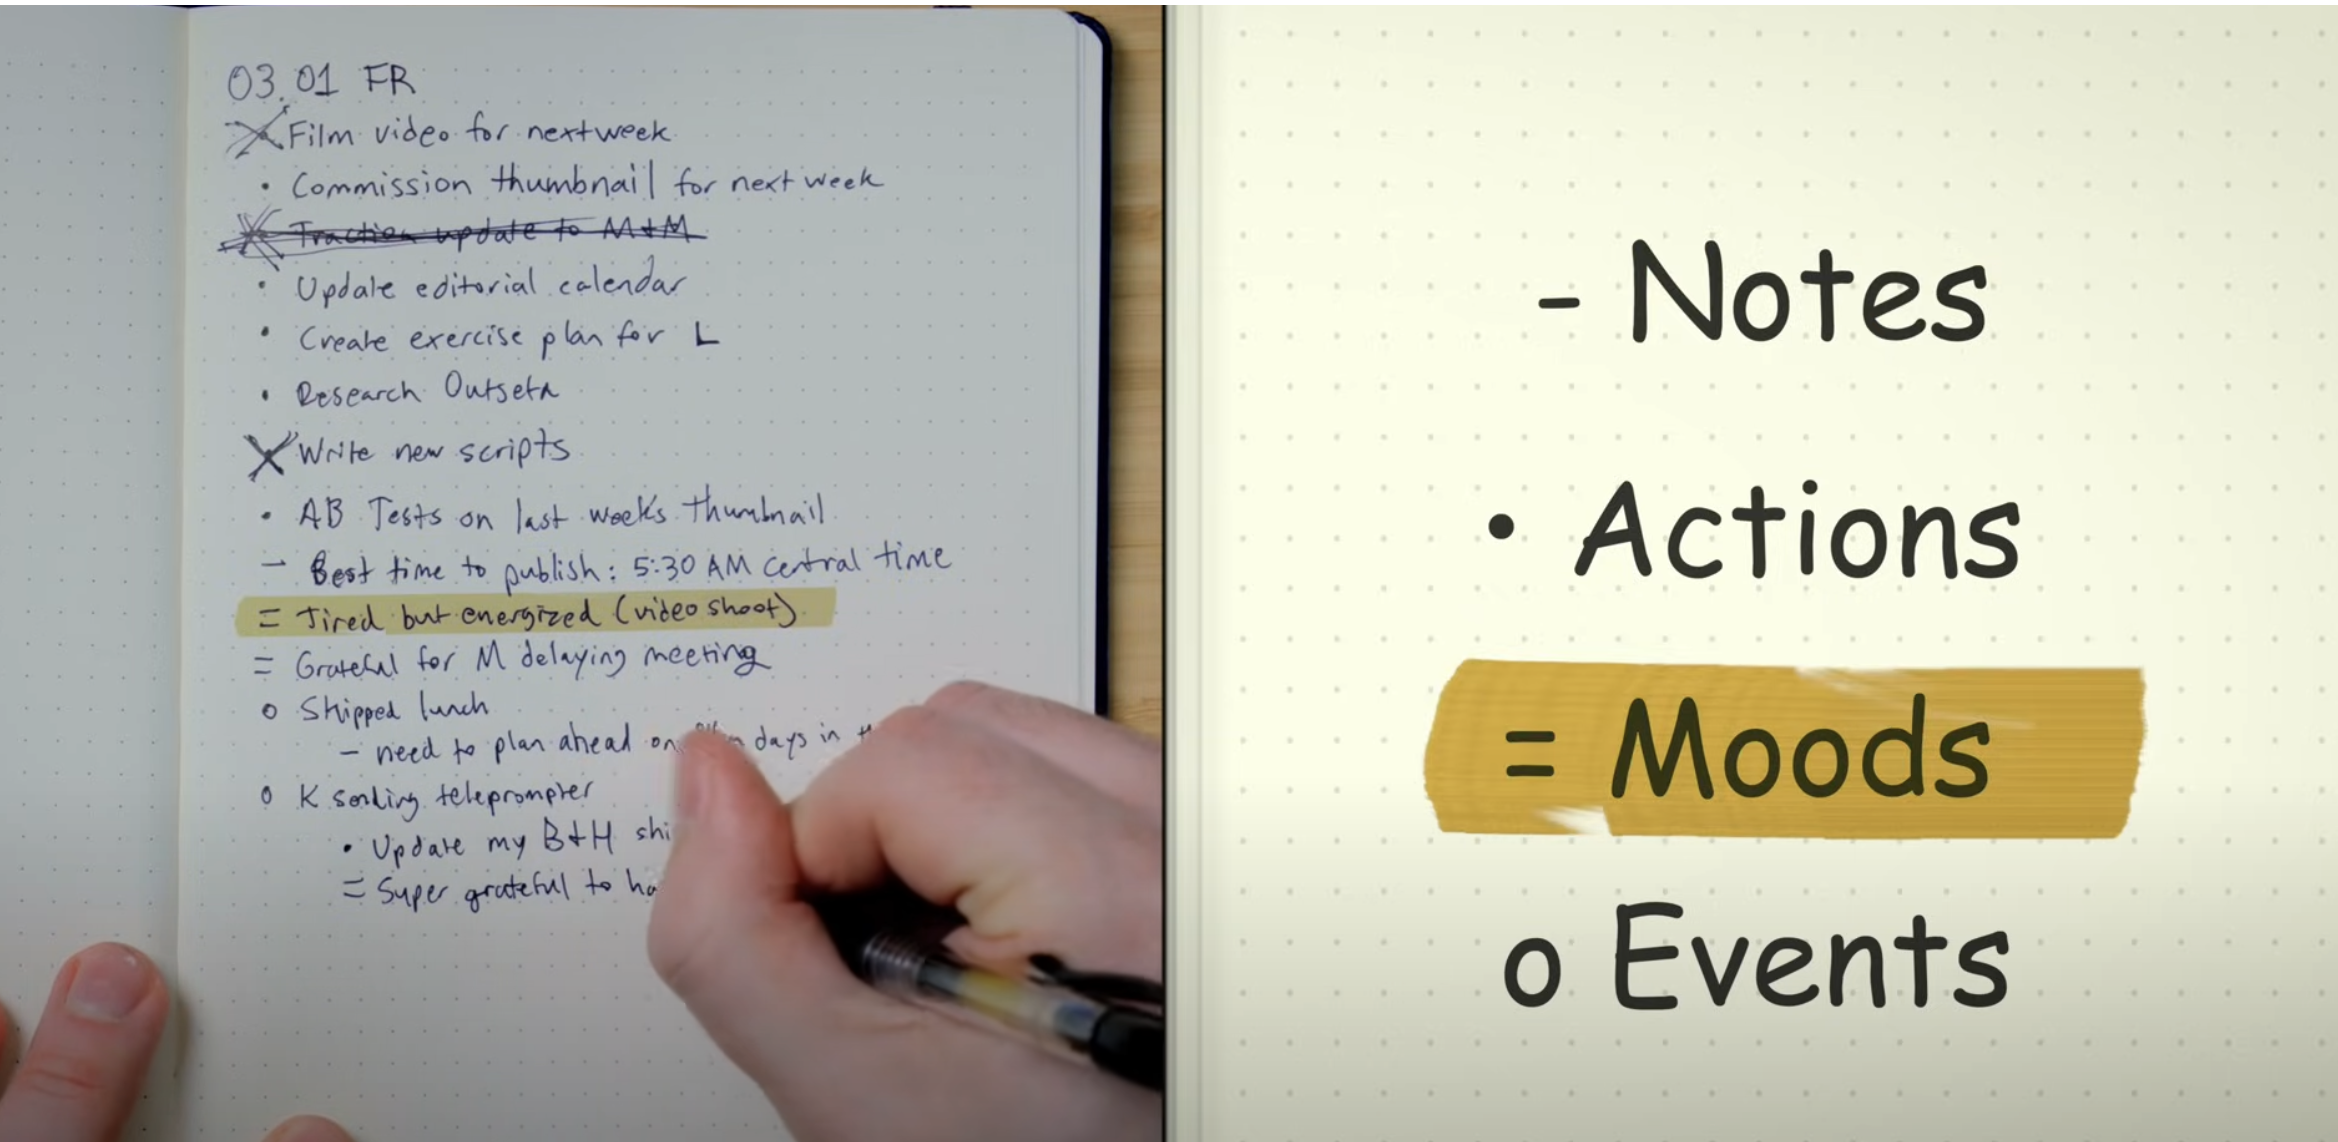 03.01 FR
X Film video for next week
• Commission thumbnail for next week
X Traction update to M+M
• Update editorial calendar
• Create exercise plan for L
• Research Outseta
X Write new scripts
• AB Tests on last weeks thumbnail
- Best time to publish: 5:30 AM central time
= Tired but energized (video shoot)
= Grateful for M delaying meeting
o Skipped lunch
- need to plan ahead on days in
o K sending teleprompter
• Update my B+H
= Super grateful to
- Notes
• Actions
= Moods
o Events